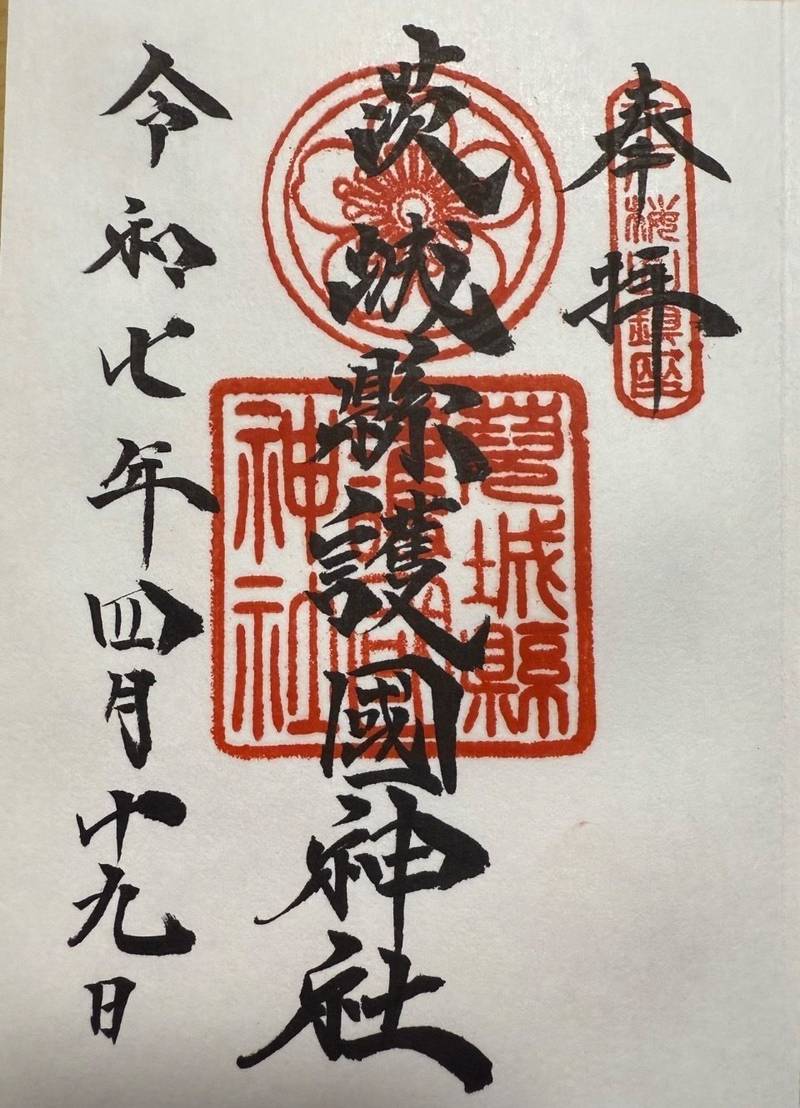 奉拝
鎮座
茨城縣護國神社
茨城縣
護國
神社
令和七年四月十九日